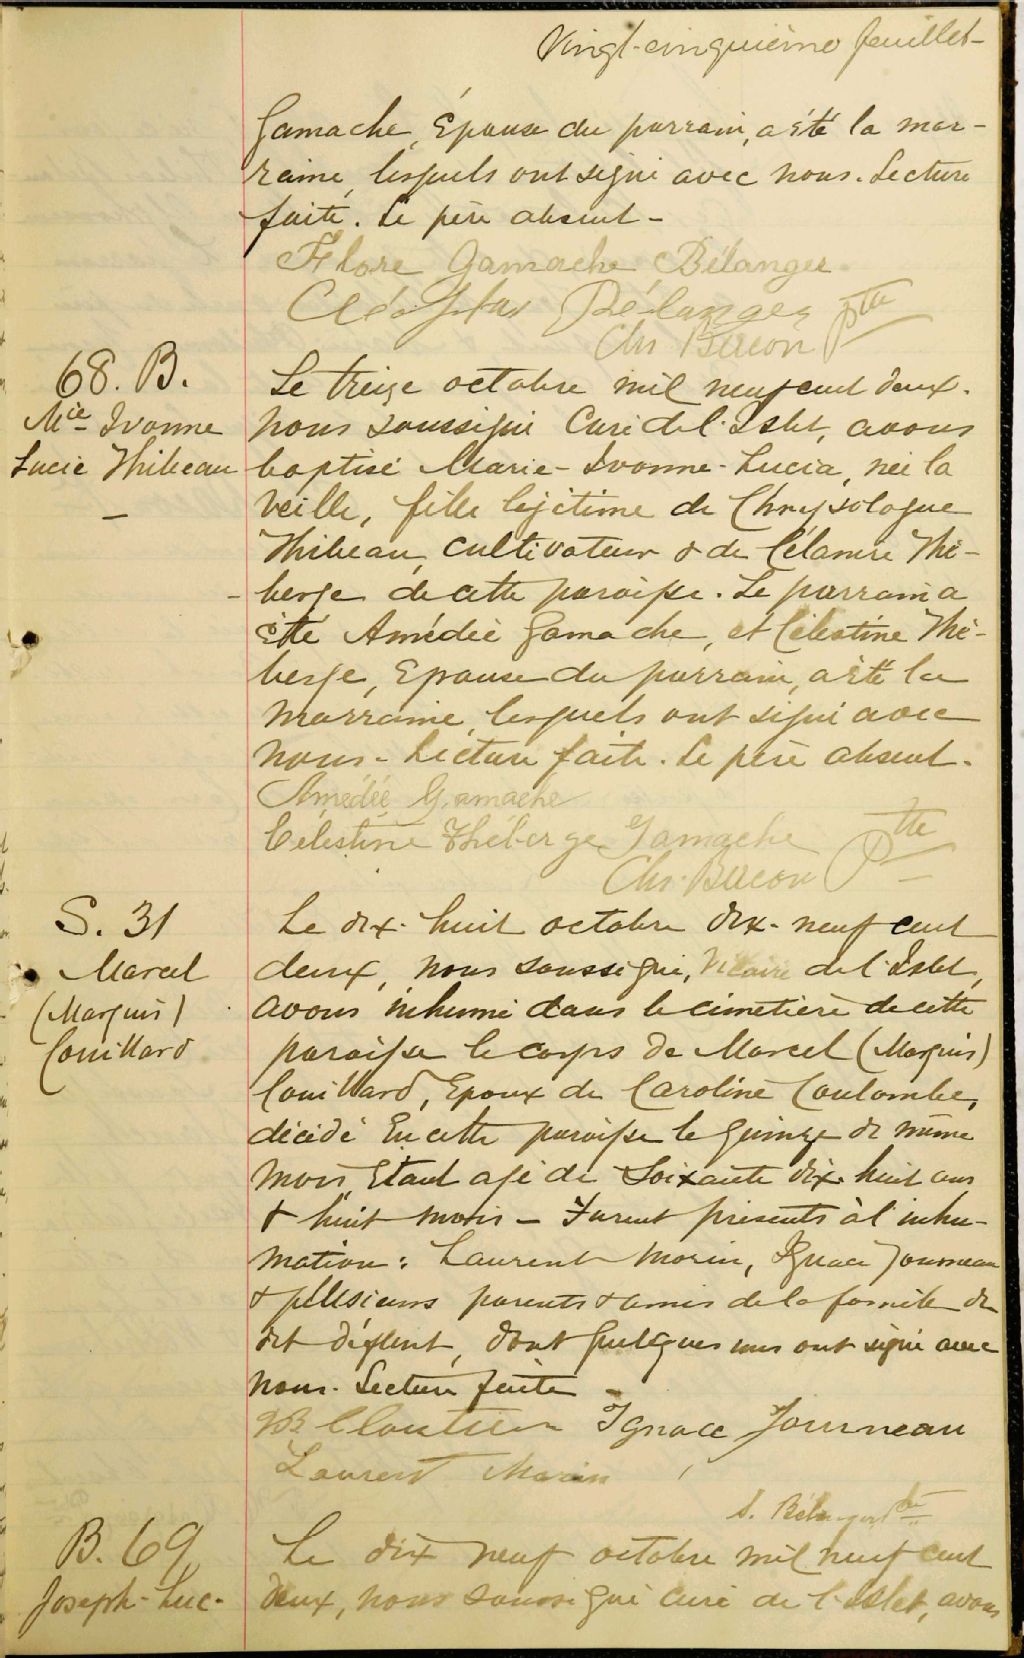 Vingt-cinquième feuillet-
Gamache, Épouse du parrain, a été la mar-
raine, lesquels ont signé avec nous. Lecture
faite. Le père absent -
Flore Gamache Bélanger
Cléophas Bélanger
Chs Bacon Ptre
68. B.
Mie Ivonne
Lucie Thibeau
Le treize octobre mil neuf cent deux.
nous soussigné Curé de l'Islet, avons
baptisé Marie-Ivonne-Lucia, née la
veille, fille légitime de Chrysologue
Thibeau, cultivateur & de Célanire Thé-
berge de cette paroisse. Le parrain a
été Amédée Gamache, et Célestine Thé-
berge, Epouse du parrain, a été la
marraine, lesquels ont signé avec
nous - Lecture faite. Le père absent.
Amédée Gamache
Célestine Théberge Gamache
Chs. Bacon Ptre
S. 31
Marcel
(Marquis)
Couillard
Le dix-huit octobre dix-neuf cent
deux, nous soussigné, Vicaire de l'Islet,
avons inhumé dans le cimetière de cette
paroisse le corps de Marcel (Marquis)
Couillard, Epoux de Caroline Coulombe,
décédé En cette paroisse le quinze de même
mois, Etant agé de Soixante dix-huit ans
& huit mois - Furent présents à l'inhu-
mation: Laurent Morin, Ignace Journeau
& plusieurs parents & amis de la famille du
dit défunt, dont quelques uns ont signé avec
nous. Lecture faite -
JB Cloutier Ignace Journeau
Laurent Morin
S. Bélanger Ptre
B. 69
Joseph-Luc-
Le dix neuf octobre mil neuf cent
deux, nous soussigné curé de l'Islet, avons